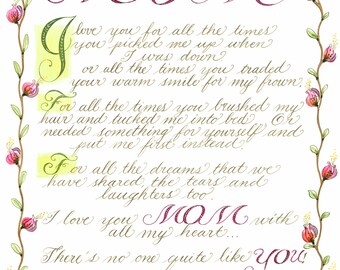 I love you for all the times
you picked me up when
I was down
or all the times you traded
your warm smile for my frown.
For all the times you brushed my
hair and tucked me into bed. Or
needed something for yourself and
put me first instead.
For all the dreams that we
have shared, the tears and
laughters too.
I love you MOM with
all my heart...
There's no one quite like YOU!